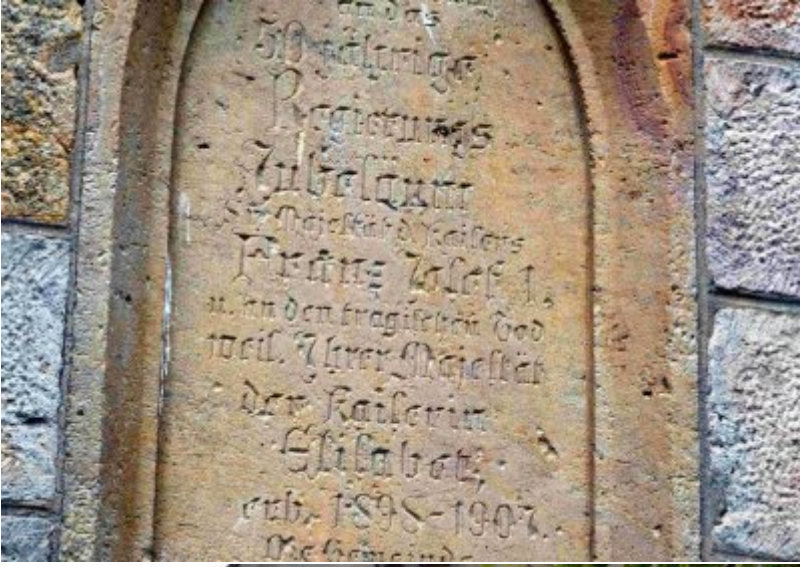 an das
50 jährige
Regierungs
Jubeläum
Sr. Majestät d. Kaisers
Franz Josef I,
u. an den tragischen Tod
weil. Ihrer Majestät
der Kaiserin
Elisabet,
erb. 1898-1907.
Die Gemeinde